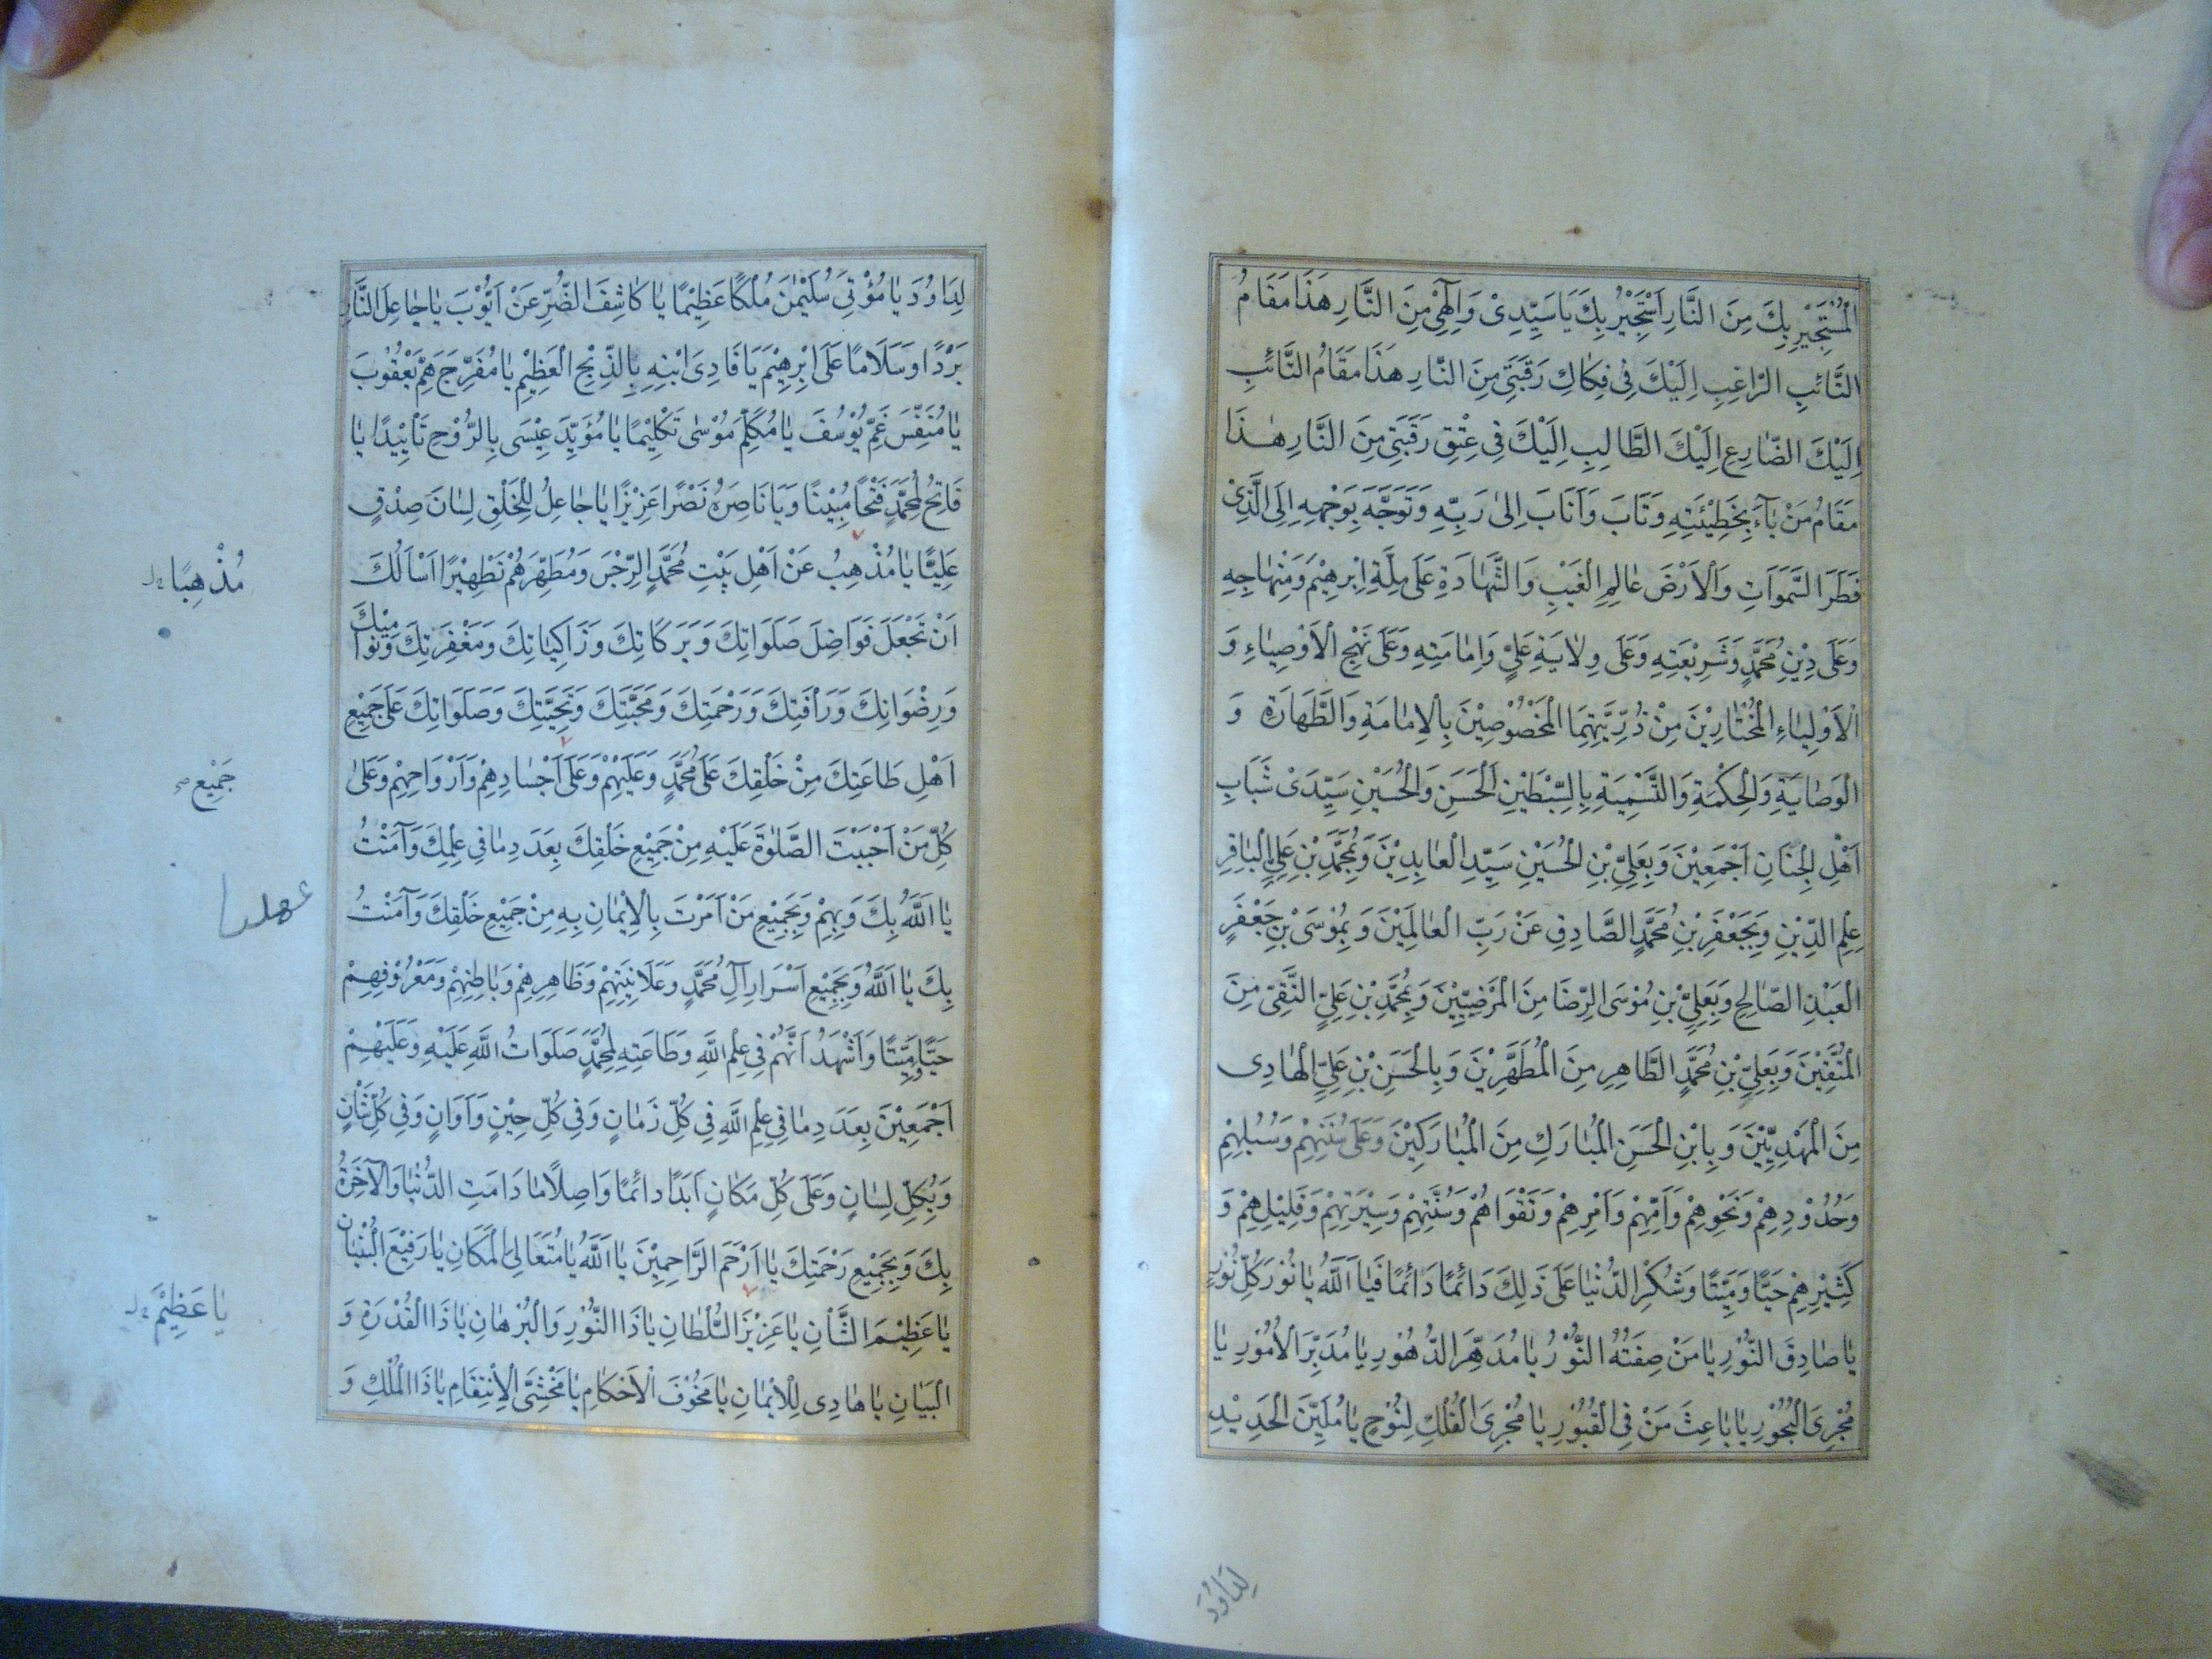 الْمُسْتَجِيْرِ بِكَ مِنَ النَّارِ اَسْتَجِيْرُ بِكَ يَا سَيِّدِىْ وَاِلٰهِىْ مِنَ النَّارِ هٰذَا مَقَامُ
التَّائِبِ الرَّاغِبِ اِلَيْكَ فِى فِكَاكِ رَقَبَتِى مِنَ النَّارِ هٰذَا مَقَامُ التَّائِبِ
اِلَيْكَ الضَّارِعِ اِلَيْكَ الطَّالِبِ اِلَيْكَ فِى عِتْقِ رَقَبَتِى مِنَ النَّارِ هٰذَا
مَقَامُ مَنْ بَآءَ بِخَطِيْئَتِهِ وَتَابَ وَاَنَابَ اِلىٰ رَبِّهِ وَتَوَجَّهَ بِوَجْهِهِ اِلَى الَّذِىْ
فَطَرَ السَّمَوَاتِ وَالْاَرْضَ عَالِمِ الْغَيْبِ وَالشَّهَادَةِ عَلَى مِلَّةِ اِبْرٰهِيْمَ وَمِنْهَاجِهِ
وَعَلَى دِيْنِ مُحَمَّدٍ وَشَرِيْعَتِهِ وَعَلَى وِلَايَةِ عَلِىٍّ وَاِمَامَتِهِ وَعَلَى نَهْجِ الْاَوْصِيَاءِ وَ
الْاَوْلِيَاءِ الْمُخْتَارِيْنَ مِنْ ذُرِّيَّتِهِمَا الْمَخْصُوْصِيْنَ بِالْاِمَامَةِ وَالطَّهَارَةِ وَ
الْوَصَايَةِ وَالْحِكْمَةِ وَالتَّسْمِيَةِ بِالسِّبْطَيْنِ الْحَسَنِ وَالْحُسَيْنِ سَيِّدَىْ شَبَابِ
اَهْلِ الْجِنَانِ اَجْمَعِيْنَ وَبِعَلِىِّ بْنِ الْحُسَيْنِ سَيِّدِ الْعَابِدِيْنَ وَبِمُحَمَّدِ بْنِ عَلِىٍّ الْبَاقِرِ
عِلْمِ الدِّيْنِ وَبِجَعْفَرِ بْنِ مُحَمَّدٍ الصَّادِقِ عَنْ رَبِّ الْعَالَمِيْنَ وَبِمُوْسَى بْنِ جَعْفَرٍ
الْعَبْدِ الصَّالِحِ وَبِعَلِىِّ بْنِ مُوْسَى الرِّضَا مِنَ الْمَرْضِيِّيْنَ وَبِمُحَمَّدِ بْنِ عَلِىٍّ التَّقِىِّ مِنَ
الْمُتَّقِيْنَ وَبِعَلِىِّ بْنِ مُحَمَّدٍ الطَّاهِرِ مِنَ الْمُطَهَّرِيْنَ وَبِالْحَسَنِ بْنِ عَلِىٍّ الْهَادِى
مِنَ الْمَهْدِيِّيْنَ وَبِابْنِ الْحَسَنِ الْمُبَارَكِ مِنَ الْمُبَارَكِيْنَ وَعَلَى سُنَنِهِمْ وَسُبُلِهِمْ
وَحُدُوْدِهِمْ وَنَحْوِهِمْ وَاَمِّهِمْ وَاَمْرِهِمْ وَتَقْوَاهُمْ وَسُنَّتِهِمْ وَسِيْرَتِهِمْ وَقَلِيْلِهِمْ وَ
كَثِيْرِهِمْ حَيًّا وَمَيِّتًا وَشُكْرِ الدُّنْيَا عَلَى ذَلِكَ دَائِمًا دَائِمًا فَيَا اَللّٰهُ يَا نُوْرَ كُلِّ نُوْرٍ
يَا صَادِقَ النُّوْرِ يَا مَنْ صِفَتُهُ النُّوْرُ يَا مُدَهِّرَ الدُّهُوْرِ يَا مُدَبِّرَ الْاُمُوْرِ يَا
مُجْرِىَ الْبُحُوْرِ يَا بَاعِثَ مَنْ فِى الْقُبُوْرِ يَا مُجْرِىَ الْفُلْكِ لِنُوْحٍ يَا مُلَيِّنَ الْحَدِيْدِ
لِدَاوُدَ
لِدَاوُدَ يَا مُؤْتِىَ سُلَيْمٰنَ مُلْكًا عَظِيْمًا يَا كَاشِفَ الضُّرِّ عَنْ اَيُّوْبَ يَا جَاعِلَ النَّارِ
بَرْدًا وَسَلَامًا عَلَى اِبْرٰهِيْمَ يَا فَادِىَ ابْنِهِ بِالذِّبْحِ الْعَظِيْمِ يَا مُفَرِّجَ هَمِّ يَعْقُوْبَ
يَا مُنَفِّسَ غَمِّ يُوْسُفَ يَا مُكَلِّمَ مُوْسٰى تَكْلِيْمًا يَا مُؤَيِّدَ عِيْسَى بِالرُّوْحِ تَأْيِيْدًا يَا
فَاتِحُ لِمُحَمَّدٍ فَتْحًا مُبِيْنًا وَيَا نَاصِرَهُ نَصْرًا عَزِيْزًا يَا جَاعِلُ لِلْخَلْقِ لِسَانَ صِدْقٍ
عَلِيًّا يَا مُذْهِبُ عَنْ اَهْلِ بَيْتِ مُحَمَّدٍ الرِّجْسَ وَمُطَهِّرَهُمْ تَطْهِيْرًا اَسْاَلُكَ
مُذْهِبًا
اَنْ تَجْعَلَ فَوَاضِلَ صَلَوَاتِكَ وَبَرَكَاتِكَ وَزَاكِيَاتِكَ وَمَغْفِرَتِكَ وَنَوَامِيْكَ
وَرِضْوَانِكَ وَرَأْفَتِكَ وَرَحْمَتِكَ وَمَحَبَّتِكَ وَتَحِيَّتِكَ وَصَلَوَاتِكَ عَلَى جَمِيْعِ
اَهْلِ طَاعَتِكَ مِنْ خَلْقِكَ عَلَى مُحَمَّدٍ وَعَلَيْهِمْ وَعَلَى اَجْسَادِهِمْ وَاَرْوَاحِهِمْ وَعَلىٰ
جَمِيْعِ
كُلِّ مَنْ اَحْبَبْتَ الصَّلٰوةَ عَلَيْهِ مِنْ جَمِيْعِ خَلْقِكَ بِعَدَدِ مَا فِى عِلْمِكَ وَآمَنْتُ
يَا اَللّٰهُ بِكَ وَبِهِمْ وَبِجَمِيْعِ مَنْ اَمَرْتَ بِالْاِيْمَانِ بِهِ مِنْ جَمِيْعِ خَلْقِكَ وَآمَنْتُ
بِكَ يَا اَللّٰهُ وَبِجَمِيْعِ اَسْرَارِ آلِ مُحَمَّدٍ وَعَلَانِيَتِهِمْ وَظَاهِرِهِمْ وَبَاطِنِهِمْ وَمَعْرُوْفِهِمْ
حَيًّا وَمَيِّتًا وَاَشْهَدُ اَنَّهُمْ فِى عِلْمِ اللّٰهِ وَطَاعَتِهِ لِمُحَمَّدٍ صَلَوَاتُ اللّٰهِ عَلَيْهِ وَعَلَيْهِمْ
اَجْمَعِيْنَ بِعَدَدِ مَا فِى عِلْمِ اللّٰهِ فِى كُلِّ زَمَانٍ وَفِى كُلِّ حِيْنٍ وَاَوَانٍ وَفِى كُلِّ شَأْنٍ
وَبِكُلِّ لِسَانٍ وَعَلَى كُلِّ مَكَانٍ اَبَدًا دَائِمًا وَاصِلًا مَا دَامَتِ الدُّنْيَا وَالْآخِرَةُ
بِكَ وَبِجَمِيْعِ رَحْمَتِكَ يَا اَرْحَمَ الرَّاحِمِيْنَ يَا اَللّٰهُ يَا مُتَعَالِىَ الْمَكَانِ يَا رَفِيْعَ الْبُنْيَانِ
يَا عَظِيْمَ الشَّأْنِ يَا عَزِيْزَ السُّلْطَانِ يَا ذَا النُّوْرِ وَالْبُرْهَانِ يَا ذَا الْقُدْرَةِ وَ
يَا عَظِيْمَ
الْبَيَانِ يَا هَادِى لِلْاِيْمَانِ يَا مَخُوْفَ الْاَحْكَامِ يَا مَخْشِىَّ الْاِنْتِقَامِ يَا ذَا الْمُلْكِ وَ